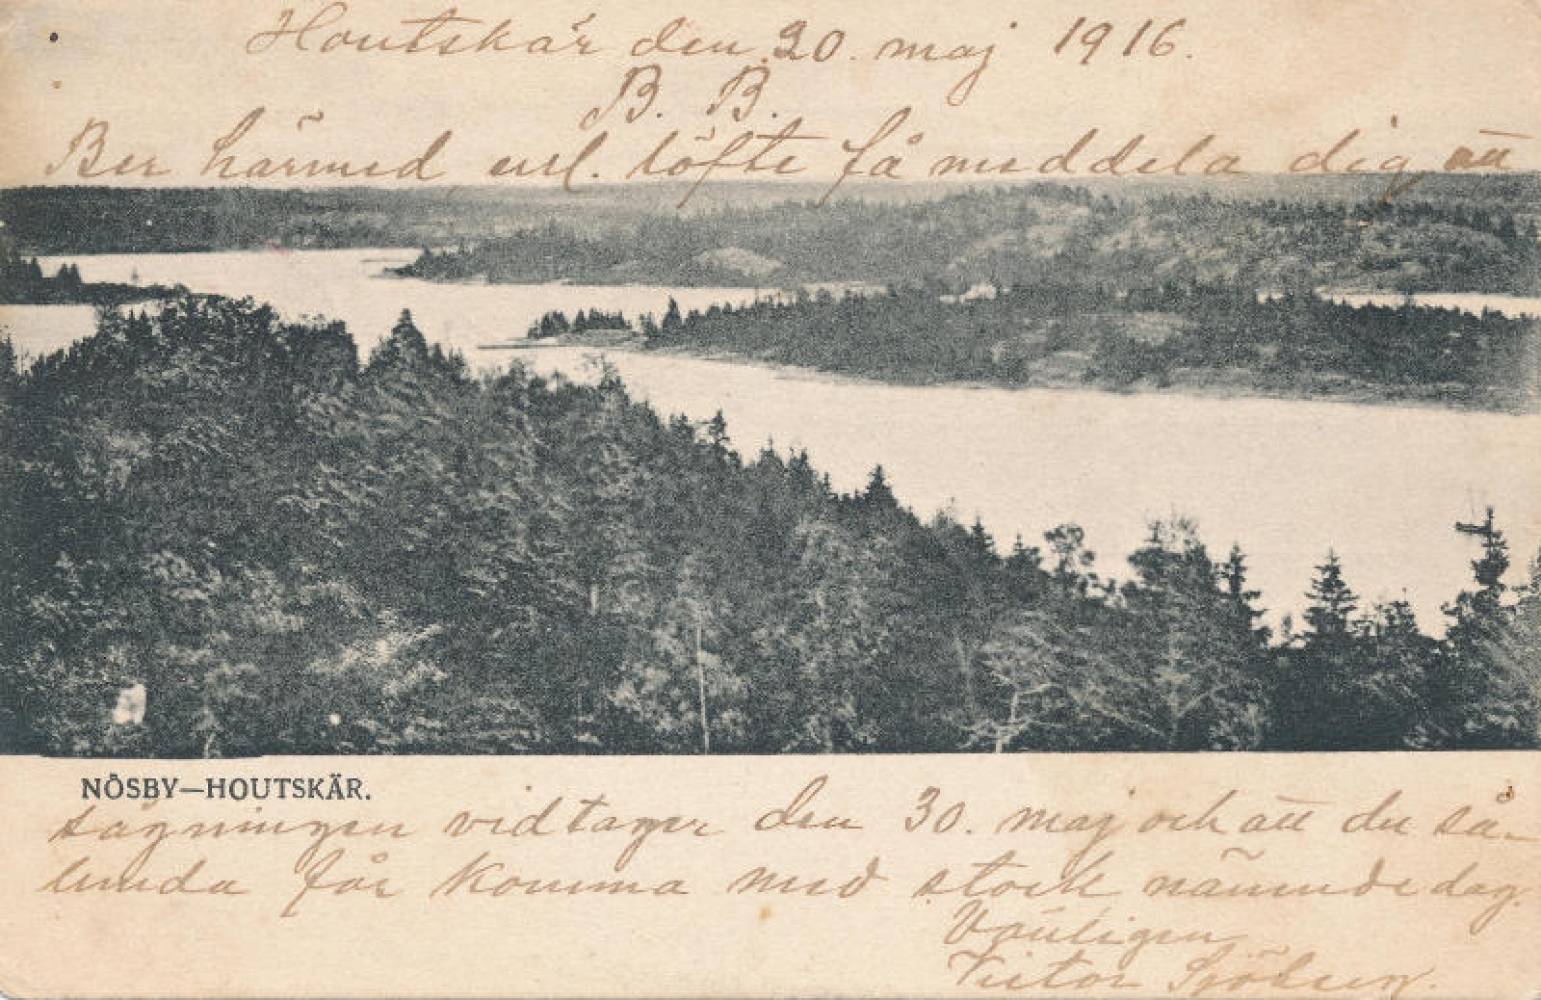 Houtskär den 20. maj 1916.
B. B.
Ber härmed enl. löfte få meddela dig att
NÖSBY—HOUTSKÄR.
sågningen vidtager den 30. maj och att du så-
lunda får komma med stock nämnde dag.
Vänligen
Victor Sjöberg.